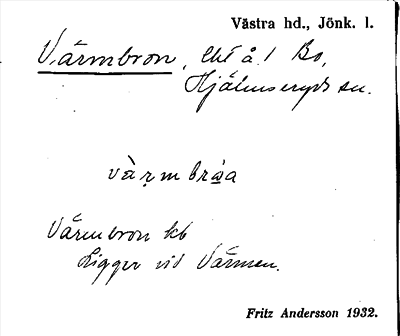 Västra hd., Jönk. l.
Värmbron, å. Bo,
Hjälmseryds sn.
värmbråa
Värmbron kb
Ligger vid Värmen.
Fritz Andersson 1932.